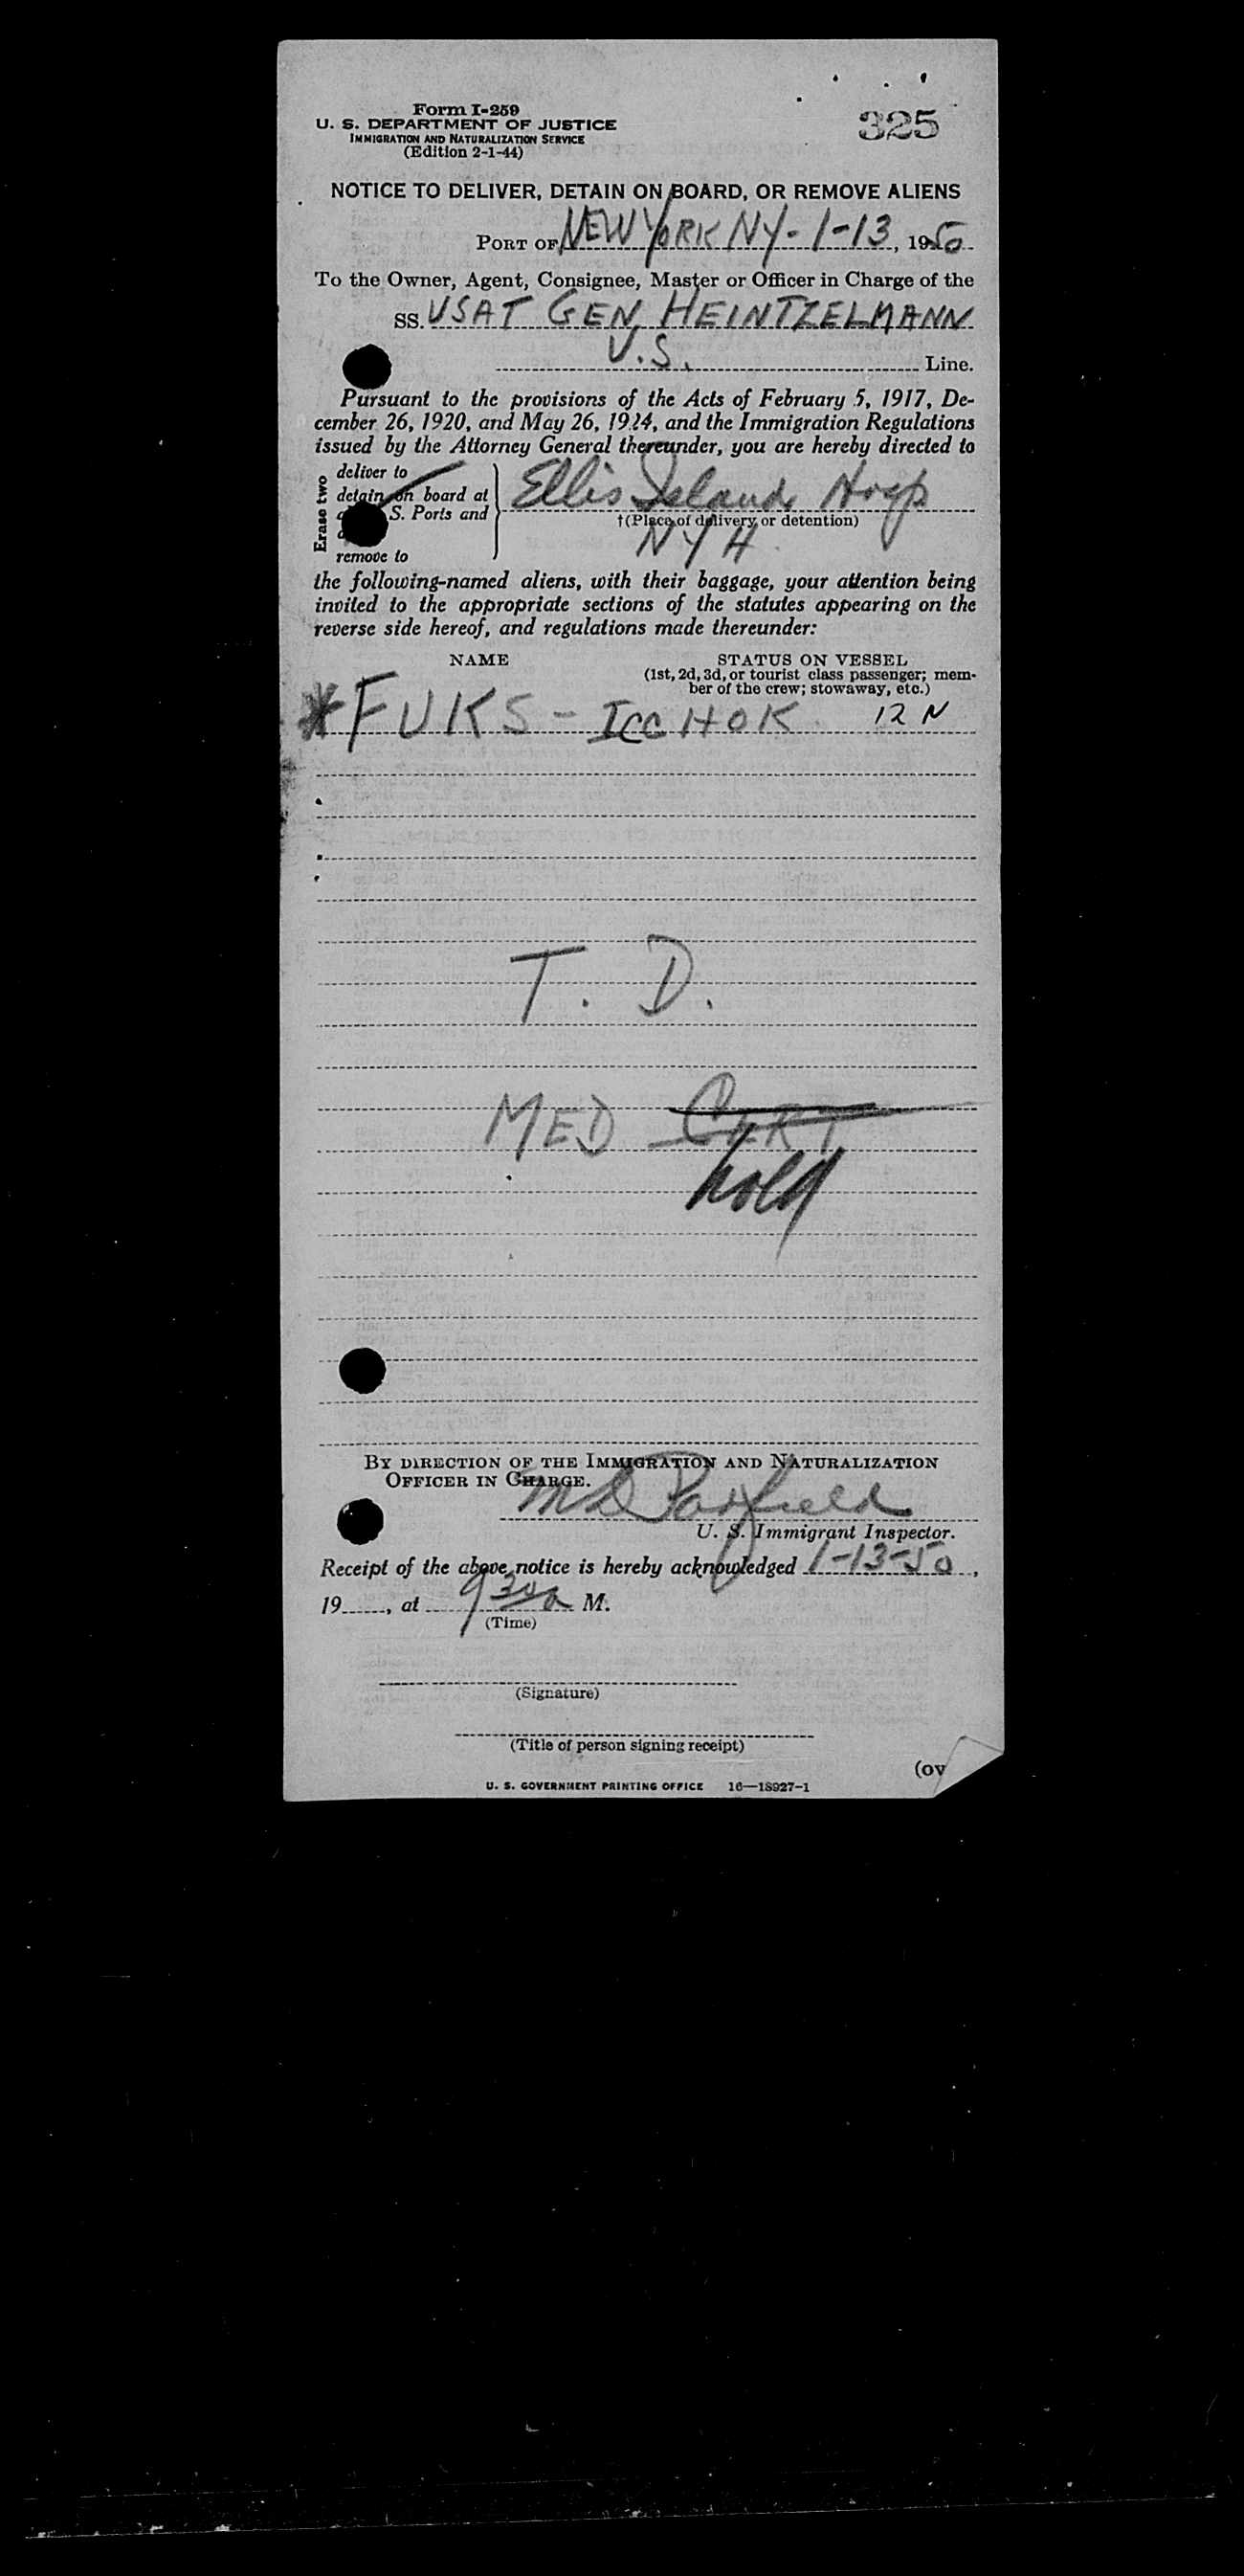 Form I-259
U. S. DEPARTMENT OF JUSTICE
IMMIGRATION AND NATURALIZATION SERVICE
(Edition 2-1-44)
325
NOTICE TO DELIVER, DETAIN ON BOARD, OR REMOVE ALIENS
PORT OF NEW YORK NY - 1-13, 1950
To the Owner, Agent, Consignee, Master or Officer in Charge of the
SS. USAT GEN. HEINTZELMANN
U.S. Line.
Pursuant to the provisions of the Acts of February 5, 1917, De-
cember 26, 1920, and May 26, 1924, and the Immigration Regulations
issued by the Attorney General thereunder, you are hereby directed to
Erase two
deliver to
detain on board at
S. Ports and
remove to
Ellis Island Hosp
†(Place of delivery or detention)
N Y H
the following-named aliens, with their baggage, your attention being
invited to the appropriate sections of the statutes appearing on the
reverse side hereof, and regulations made thereunder:
NAME STATUS ON VESSEL
(1st, 2d, 3d, or tourist class passenger; mem-
ber of the crew; stowaway, etc.)
* FUKS - ICCHOK 12 N
T. D.
MED CERT
hold
BY DIRECTION OF THE IMMIGRATION AND NATURALIZATION
OFFICER IN CHARGE.
U. S. Immigrant Inspector.
Receipt of the above notice is hereby acknowledged 1-13-50,
19____, at 930a M.
(Time)
(Signature)
(Title of person signing receipt)
(ov
U. S. GOVERNMENT PRINTING OFFICE 16—18927-1